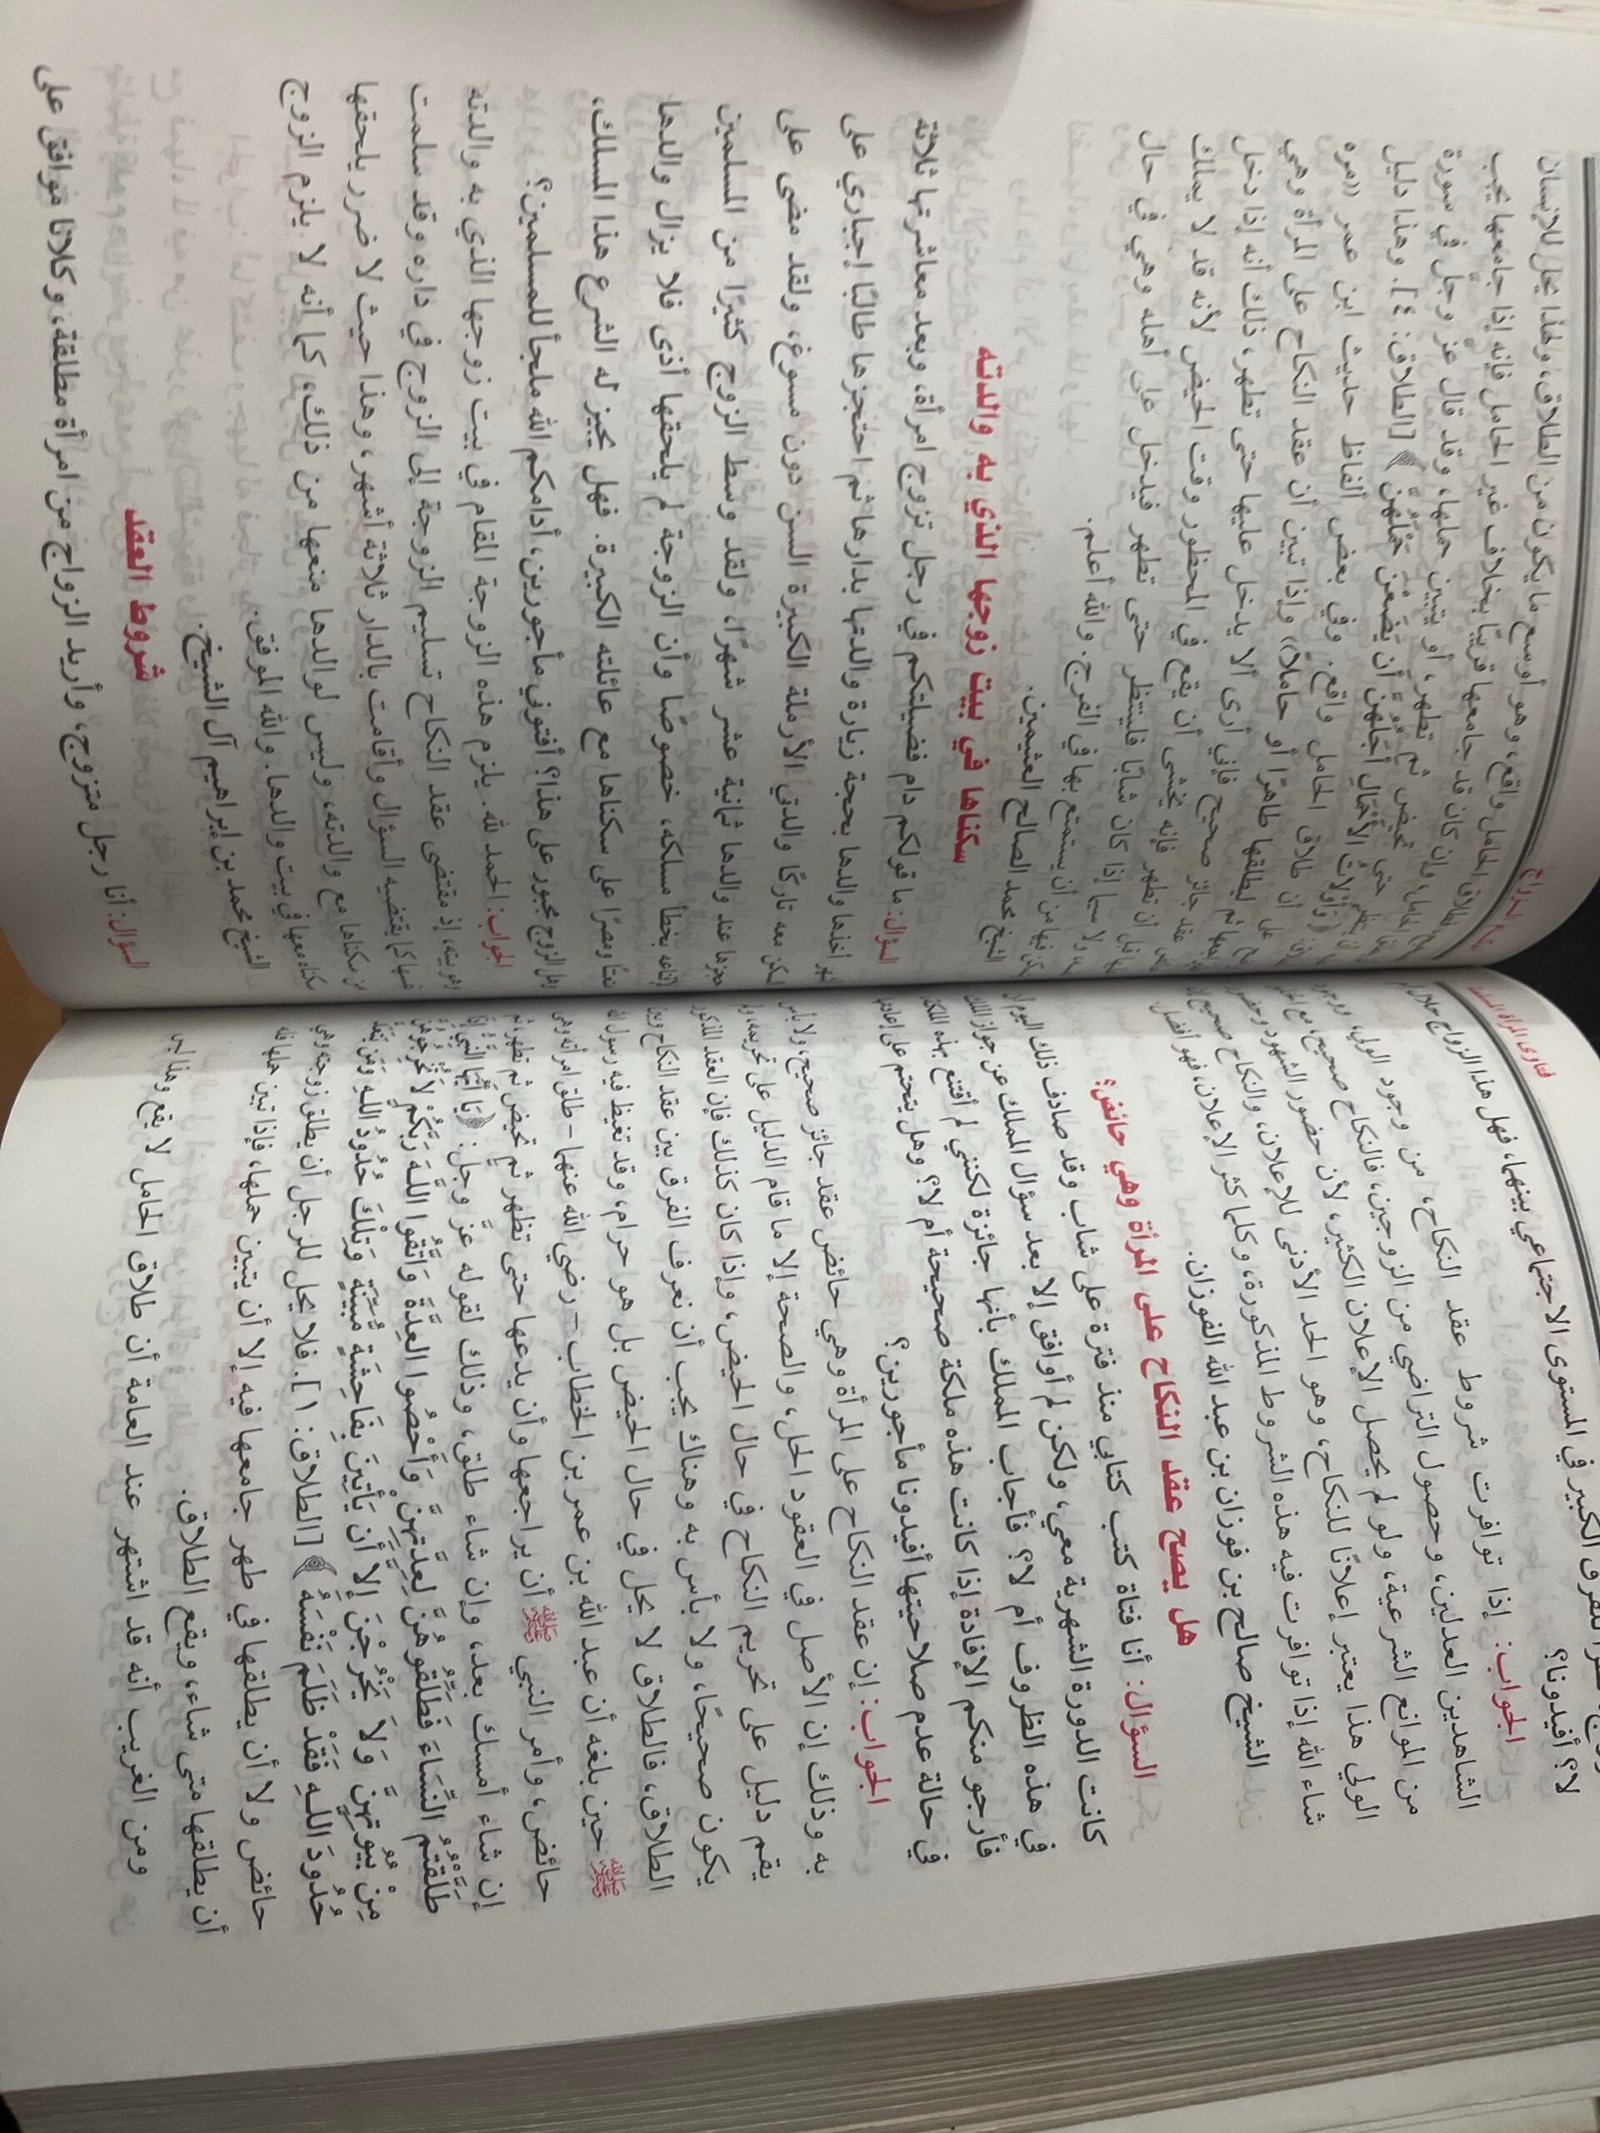 فتاوى المرأة المسلمة
الفرق الكبير في المستوى الاجتماعي بينهما، فهل هذا الزواج حلال
لا؟ أفيدونا؟
الجواب: إذا توافرت شروط عقد النكاح، من وجود الولي،
الشاهدين العدلين، وحصول التراضي من الزوجين، فالنكاح صحيح،
من الموانع الشرعية، ولو لم يحصل الإعلان الكثير، لأن حضور الشهود وحضور
الولي هذا يعتبر إعلانًا للنكاح، وهو الحد الأدنى للإعلان، والنكاح صحيح
شاء الله إذا توافرت فيه هذه الشروط المذكورة، وكلما كثر الإعلان، فهو أفضل.
الشيخ صالح بن فوزان بن عبد الله الفوزان.
هل يصح عقد النكاح على المرأة وهي حائض؟
السؤال: أنا فتاة كتب كتابي منذ فترة على شاب وقد صادف ذلك اليوم
كانت الدورة الشهرية معي، ولكن لم أوافق إلا بعد سؤال المملك عن جواز الملكة
في هذه الظروف أم لا؟ فأجاب المملك بأنها جائزة لكنني لم أقتنع بهذه الملكة
فأرجو منكم الإفادة إذا كانت هذه ملكة صحيحة أم لا؟ وهل يتحتم علي إعادتها
في حالة عدم صلاحيتها أفيدونا مأجورين؟
الجواب: إن عقد النكاح على المرأة وهي حائض عقد جائز صحيح، ولا بأس
به وذلك إن الأصل في العقود الحل، والصحة إلا ما قام الدليل على تحريمه، ولم
يقم دليل على تحريم النكاح في حال الحيض، وإذا كان كذلك فإن العقد المذكور
يكون صحيحًا، ولا بأس به وهناك يجب أن نعرف الفرق بين عقد النكاح وبين
الطلاق، فالطلاق لا يحل في حال الحيض بل هو حرام، وقد تغيظ فيه رسول الله
ﷺ حين بلغه أن عبد الله بن عمر بن الخطاب - رضي الله عنهما - طلق امرأته وهي
حائض، وأمر النبي ﷺ أن يراجعها وأن يدعها حتى تطهر ثم تحيض ثم تطهر ثم
إن شاء أمسك بعد، وإن شاء طلق، وذلك لقوله عزَّ وجلَّ: ﴿يَا أَيُّهَا النَّبِيُّ إِذَا
طَلَّقْتُمُ النِّسَاءَ فَطَلِّقُوهُنَّ لِعِدَّتِهِنَّ وَأَحْصُوا الْعِدَّةَ وَاتَّقُوا اللَّهَ رَبَّكُمْ لَا تُخْرِجُوهُنَّ
مِنْ بُيُوتِهِنَّ وَلَا يَخْرُجْنَ إِلَّا أَنْ يَأْتِينَ بِفَاحِشَةٍ مُبَيِّنَةٍ وَتِلْكَ حُدُودُ اللَّهِ وَمَنْ يَتَعَدَّ
حُدُودَ اللَّهِ فَقَدْ ظَلَمَ نَفْسَهُ﴾ [الطلاق: ١]. فلا يحل للرجل أن يطلق زوجته وهي
حائض ولا أن يطلقها في طهر جامعها فيه إلا أن يتبين حملها، فإذا تبين حملها فله
أن يطلقها متى شاء، ويقع الطلاق.
ومن الغريب أنه قد اشتهر عند العامة أن طلاق الحامل لا يقع وهذا ليس
طلاق الحامل واقع، وهو أوسع ما يكون من الطلاق، ولهذا يحل للإنسان
الحامل، وإن كان قد جامعها قريبًا بخلاف غير الحامل فإنه إذا جامعها يجب
حتى تحيض ثم تطهر، أو يتبين حملها، وقد قال عز وجل في سورة
﴿وَأُولَاتُ الْأَحْمَالِ أَجَلُهُنَّ أَنْ يَضَعْنَ حَمْلَهُنَّ﴾ [الطلاق: ٤]. وهذا دليل
أن طلاق الحامل واقع. وفي بعض ألفاظ حديث ابن عمر «مره
ثم ليطلقها طاهرًا أو حاملًا» وإذا تبين أن عقد النكاح على المرأة وهي
عقد جائز صحيح فإني أرى ألا يدخل عليها حتى تطهر، ذلك أنه إذا دخل
قبل أن تطهر فإنه يخشى أن يقع في المحظور وقت الحيض لأنه قد لا يملك
ولا سيما إذا كان شابًا فلينتظر حتى تطهر فيدخل على أهله وهي في حال
فيها من أن يستمتع بها في الفرج. والله أعلم.
الشيخ محمد الصالح العثيمين.
سكناها في بيت زوجها الذي به والدته
السؤال: ما قولكم دام فضيلتكم في رجل تزوج امرأة، وبعد معاشرتها ثلاثة
أشهر أخذها والدها بحجة زيارة والدتها بدارها ثم احتجزها طالبًا إجباري على
السكن معه تاركًا والدتي الأرملة الكبيرة السن دون مسوغ، ولقد مضى على
حجزها عند والدها ثمانية عشر شهرًا، ولقد وسط الزوج كثيرًا من المسلمين
لإقناعه بخطأ مسلكه، خصوصًا وأن الزوجة لم يلحقها أذى فلا يزال والدها
متعنتًا ومصرًا على سكناها مع عائلته الكبيرة. فهل يجيز له الشرع هذا المسلك،
وهل الزوج مجبور على هذا؟ أفتوني مأجورين، أدامكم الله ملجأ للمسلمين؟
الجواب: الحمد لله. يلزم هذه الزوجة المقام في بيت زوجها الذي به والدته
وهو بيته، إذ مقتضى عقد النكاح تسليم الزوجة إلى الزوج في داره وقد سلمت
نفسها كما يقتضيه السؤال وأقامت بالدار ثلاثة أشهر، وهذا حيث لا ضرر يلحقها
من سكناها مع والدته، وليس لوالدها منعها من ذلك، كما أنه لا يلزم الزوج
سكناه معها في بيت والدها. والله الموفق.
الشيخ محمد بن إبراهيم آل الشيخ.
شروط العقد
السؤال: أنا رجل متزوج، وأريد الزواج من امرأة مطلقة، وكلانا موافق على